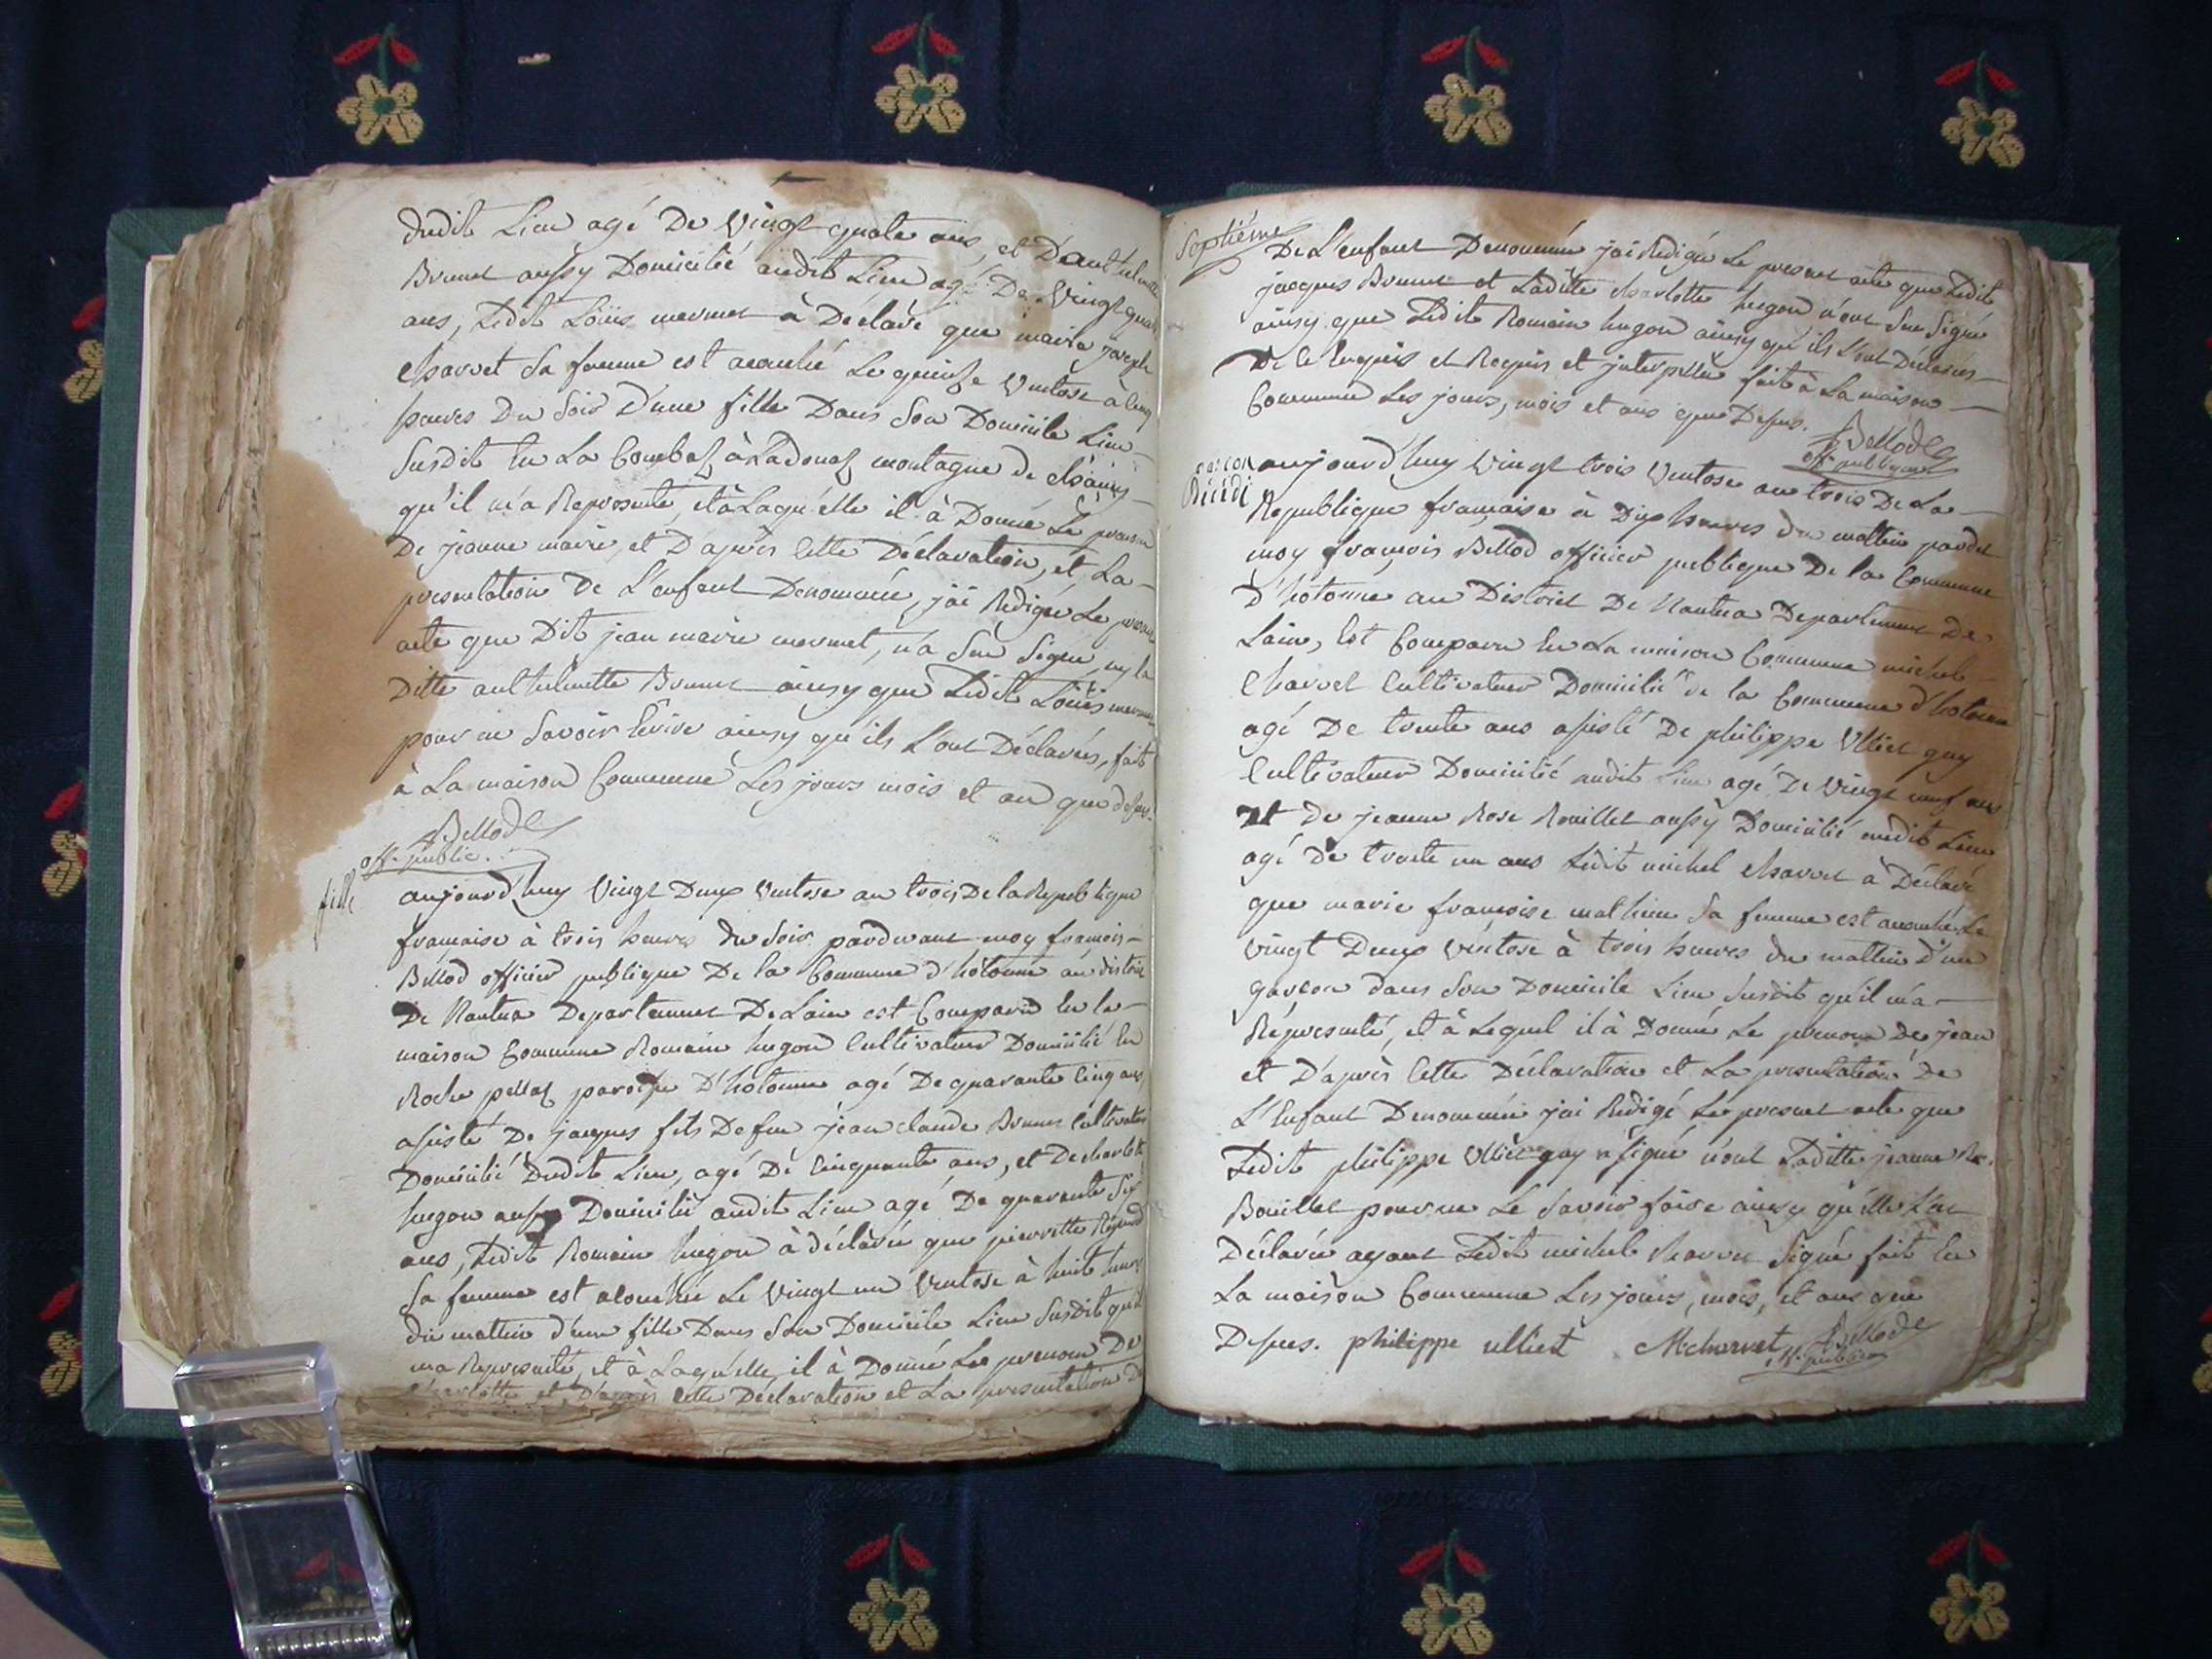 dudit Lieu agé De Vingt quatre ans, et D'anthelmette
Brunet aussy Domicilié audit Lieu agé De Vingt quatre
ans, Ledit Loüis mermet à Déclaré que marie joseph
Charvet Sa femme est acouché Le quinse Ventose à Cinq
heures Du Soir D'une fille Dans Son Domicile Lieu
Susdit En La Combaz à Ladouaz montagne de
qu'il m'a Representé, et à Laquelle il à Donné Le prenom
De jeanne marie, et D'après Cette Déclaration, et La
presentation De L'enfant Denommée, jai Redigée Le present
acte que Dit jean marie mermet, n'a Seu Signé, ny la
Ditte anthelmette Brunet ainsy que Ledit Loüis mermet
pour ne Savoir Ecrire ainsy qu'ils L'ont Déclarés, fait
à La maison Commune Les jours mois et an que dessus.
Bellod
off. public.
fille
aujourd'huy Vingt Deux Ventose an trois De la Republique
francaise à trois heures du Soir pardevant moy francois
Bellod officier publique De la Commune d'hotonne au district
De Nantua Departement De Lain est Comparu en la
maison Commune Romain hugon Cultivateur Domicilié En
Roche pellaz paroisse D'hotonne agé De quarante Cinq ans,
assisté De jacques fils De feu jean claude Brunet Cultivateur
Domicilié Dudit Lieu, agé De Cinquante ans, et De charlotte
hugon aussy Domicilié audit Lieu agé De quarante Six
ans, Ledit Romain hugon à déclaré que pierrette
Sa femme est acouchée Le Vingt un Ventose à huit heures
du mattin d'une fille Dans Son Domicile Lieu Susdit qu'il
ma Representé, et à Laquelle, il à Donné Le prenom De
Charlotte et D'après Cette Déclaration et La presentation De
Septième
De L'enfant Denommée jai Redigée Le present acte que Ledit
jacques Brunet et Laditte charlotte hugon n'ont Seu Signé
ainsy que Ledit Romain hugon ainsy qu'ils L'ont Déclarés
De Ce Enquis et Requis et jnterpellée fait à La maison
Commune Les jours, mois et ans que Dessus.
Bellod
off. publique
garcon
Décédé
aujourd'huy Vingt trois Ventose an trois De La
Republique francaise à Dix heures du mattin pardet
moy françois Bellod officier publique De la Commune
D'hotonne au District De Nantua Departement De
Lain, Est Comparu En La maison Commune michel
Charvet Cultivateur Domicilié de la Commune d'hotonne
agé De trente ans assisté De philippe Ulliet guy
Cultivateur Domicilié audit Lieu agé De Vingt neuf ans
Et De jeanne Rose Rouillet aussy Domicilié audit Lieu
agé De trente un ans Ledit michel Charvet à Déclaré
que marie francoise mathieu Sa femme est acouchée Le
Vingt Deux Véntose à trois heures du mattin D'un
garcon dans Son Domicile Lieu Susdit qu'il m'a
Réprésenté, et à Lequel il à Donné Le prenom De jean
et D'après Cette Déclaration et La presentation De
L'Enfant Denommée jai Redigé Le present acte que
Ledit philippe Ulliet guy a signé n'ont Laditte jeanne Ro.
Bouillet pour ne Le Savoir faire ainsy qu'elle L'a
Déclarée ayant Ledit michel Charvet Signé fait En
La maison Commune Les jours, mois, et ans que
Dessus. philippe ulliet M charvet Bellod
off. publique